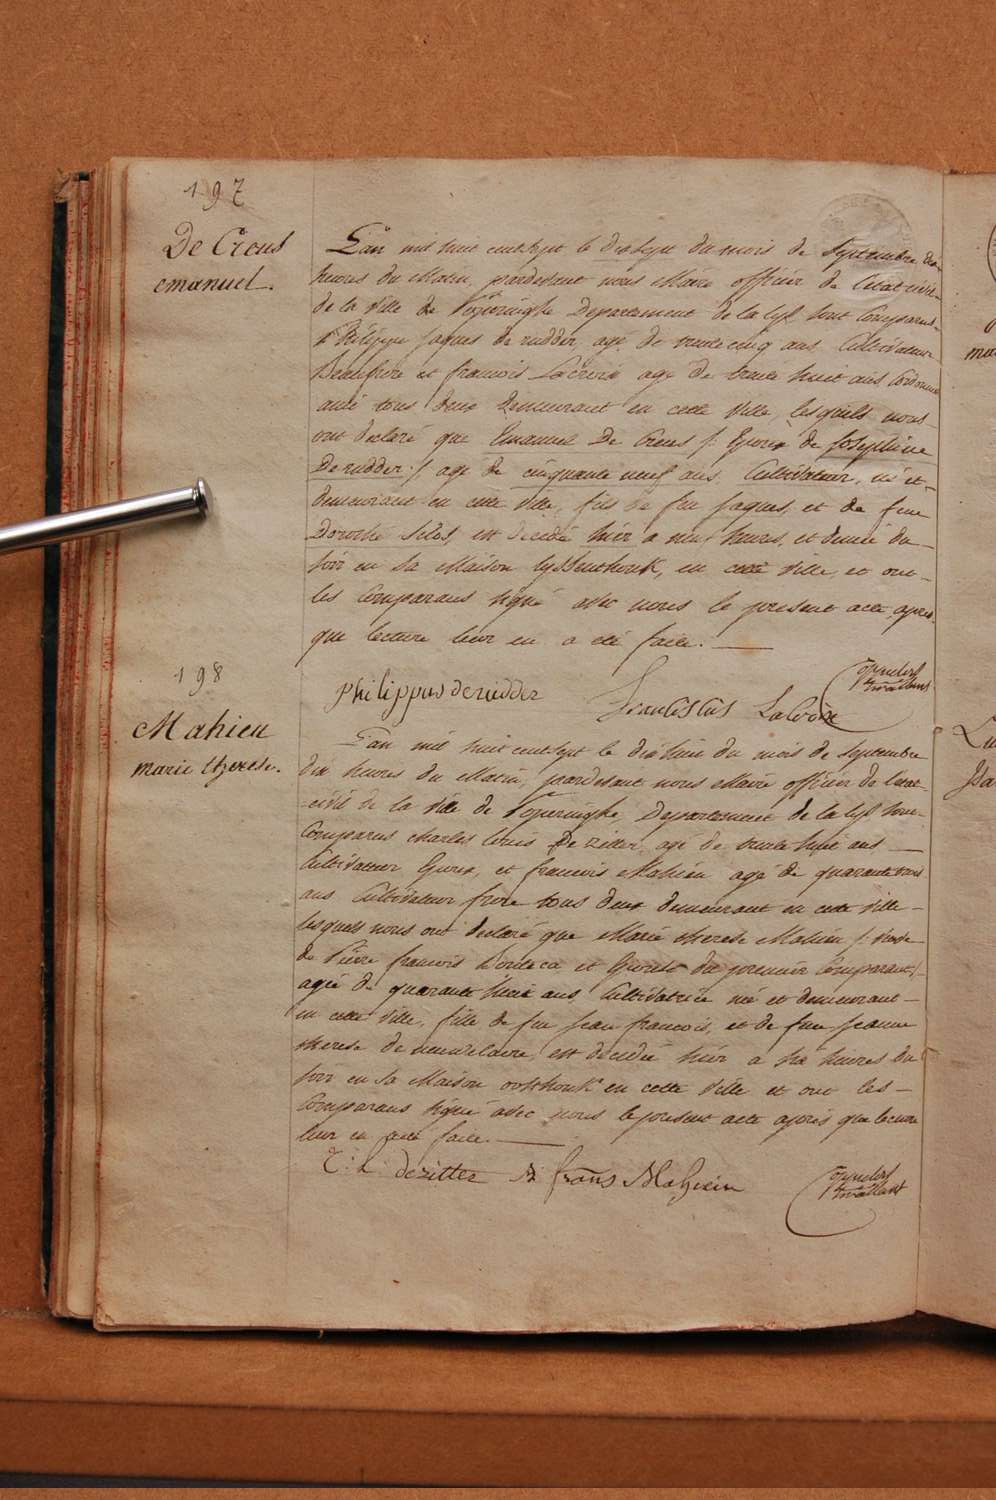 197
De Creus
emanuel.
L'an mil huit cent sept le dix sept du mois de Septembre dix
heures du Matin, pardevant nous Maire officier de l'etat civil
de la ville de Poperinghe Departement de la lys sont Comparus
Philippe Jaques de rudder, agé de trente cinq ans Cultivateur
Beaufrere et francois Lacroix agé de trente huit ans Cordonnier
ami tous deux Demeurant en cette ville, lesquels nous
ont declaré que Emanuel De Creus /: Epoux de Josephine
De rudder :/ agé de cinquante neuf ans, Cultivateur, né et
demeurant en cette ville, fils de feu Jaques, et de feue
Dorothé Silos, est decedé hier a neuf heures, et demie du
soir en sa Maison en cette ville, et ont
les Comparans signé avec nous le present acte, apres
que lecture leur en a eté faite.
philippus de rudder
Franciscus Lacroix
198
Mahieu
marie therese.
L'an mil huit cent sept le dix huit du mois de Septembre
dix heures du Matin, pardevant nous Maire officier de l'etat
civil de la ville de Poperinghe Departement de la lys sont
Comparus charles louis De zitter, agé de trente huit ans
Cultivateur Epoux, et francois Mahieu agé de quarante trois
ans Cultivateur frere tous deux demeurant en cette ville
lesquels nous ont declaré que Marie therese Mahieu /: Veuve
de Pierre francois et Epouse du premier Comparant :/
agée de quarante huit ans, Cultivatrice né et demeurant
en cette ville, fille de feu Jean francois, et de feue Jeanne
therese de est decedée hier a six heures du
soir en sa Maison oosthouk en cette ville et ont les
Comparans signé avec nous le present acte après que lecture
leur en a eté faite.
C: L: dezitter
frans Mahieu